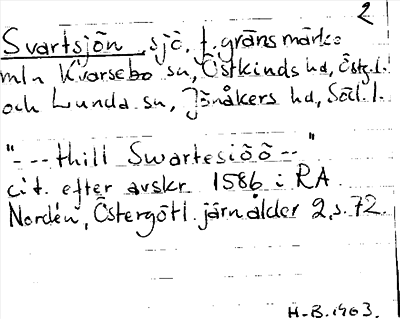 2
Svartsjön, sjö, f. gränsmärke
mln Kvarsebo sn, Östkinds hd, Östg. l.
och Lunda sn, Jönåkers hd, Södl. l.
"--- thill Swartesiöö --"
cit. efter avskr. 1586 i RA
Nordén, Östergötl. järnålder 2, s. 72.
H-B. 1963.